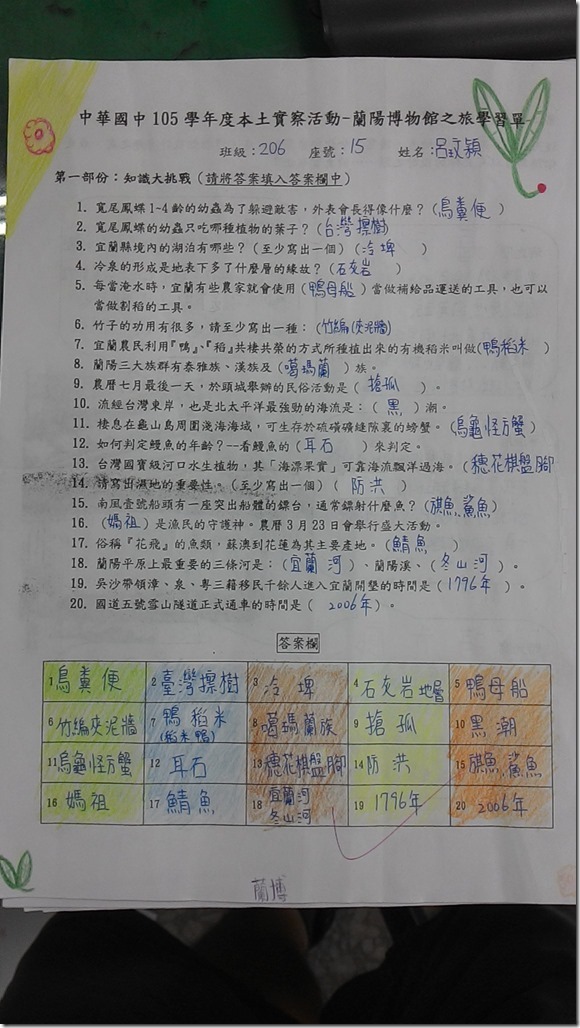 中華國中 105 學年度本土實察活動-蘭陽博物館之旅學習單
班級：206 座號：15 姓名：呂玟穎
第一部份：知識大挑戰（請將答案填入答案欄中）
1. 寬尾鳳蝶1~4齡的幼蟲為了躲避敵害，外表會長得像什麼？（鳥糞便）
2. 寬尾鳳蝶的幼蟲只吃哪種植物的葉子？（台灣擦樹）
3. 宜蘭縣境內的湖泊有哪些？（至少寫出一個）（冷埤）
4. 冷泉的形成是地表下多了什麼層的緣故？（石灰岩）
5. 每當淹水時，宜蘭有些農家就會使用（鴨母船）當做補給品運送的工具，也可以
當做割稻的工具。
6. 竹子的功用有很多，請至少寫出一種：（竹編夾泥牆）
7. 宜蘭農民利用『鴨』、『稻』共棲共榮的方式所種植出來的有機稻米叫做（鴨稻米）
8. 蘭陽三大族群有泰雅族、漢族及（噶瑪蘭）族。
9. 農曆七月最後一天，於頭城舉辦的民俗活動是（搶孤）。
10. 流經台灣東岸，也是北太平洋最強勁的海流是：（黑）潮。
11. 棲息在龜山島周圍淺海海域，可生存於硫磺礦縫隙裏的螃蟹。（烏龜怪方蟹）
12. 如何判定鰻魚的年齡？--看鰻魚的（耳石）來判定。
13. 台灣國寶級河口水生植物，其「海漂果實」可靠海流飄洋過海。（穗花棋盤腳
14. 請寫出濕地的重要性。（至少寫出一個）（防洪）
15. 南風壹號船頭有一座突出船體的鏢台，通常鏢射什麼魚？（旗魚、鯊魚）
16. （媽祖）是漁民的守護神。農曆3月23日會舉行盛大活動。
17. 俗稱『花飛』的魚類，蘇澳到花蓮為其主要產地。（鯖魚）
18. 蘭陽平原上最重要的三條河是：（宜蘭河）、蘭陽溪、（冬山河）。
19. 吳沙帶領漳、泉、粵三籍移民千餘人進入宜蘭開墾的時間是（1796年）。
20. 國道五號雪山隧道正式通車的時間是（2006年）。
答案欄
1 鳥糞便 2 臺灣擦樹 3 冷埤 4 石灰岩地層 5 鴨母船
6 竹編夾泥牆 7 鴨稻米 8 噶瑪蘭族 9 搶孤 10 黑潮
(稻米鴨)
11 烏龜怪方蟹 12 耳石 13 穗花棋盤腳 14 防洪 15 旗魚、鯊魚
16 媽祖 17 鯖魚 18 宜蘭河 19 1796年 20 2006年
冬山河
蘭博